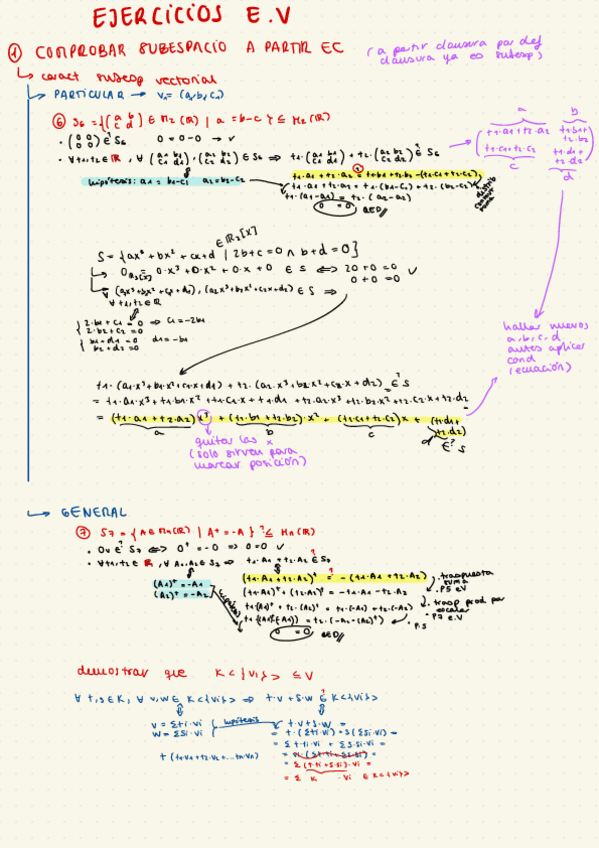 EJERCICIOS E.V
① COMPROBAR SUBESPACIO A PARTIR EC (a partir clausura por def
clausura ya es subesp)
↳ caract subesp vectorial
↳ PARTICULAR → v1 = (a1, b1, c1)
⑥ S6 = {(a b c d) ∈ M2(ℝ) | a = b-c} ≤ M2(ℝ)
• (0 0 0 0) ∈? S6 0 = 0-0 → ✓
• ∀ t1, t2 ∈ ℝ, ∀ (a1 b1 c1 d1), (a2 b2 c2 d2) ∈ S6 ⇒ t1·(a1 b1 c1 d1) + t2·(a2 b2 c2 d2) ∈? S6
hipótesis: a1 = b1-c1 a2 = b2-c2
t1·a1 + t2·a2 =? t1·b1 + t2·b2 - (t1·c1 + t2·c2)
t1·a1 + t2·a2 = t1·(b1-c1) + t2·(b2-c2)
t1·(a1-a1) = t2·(a2-a2)
0 = 0 QED//
a b
t1·a1+t2·a2 t1·b1+t2·b2
t1·c1+t2·c2 t1·d1+t2·d2
c d
S = {ax³ + bx² + cx + d ∈ ℝ3[x] | 2b+c = 0 ∧ b+d = 0}
0ℝ3[x] = 0·x³ + 0·x² + 0·x + 0 ∈ S ⟺ 2·0 + 0 = 0 ✓
0 + 0 = 0
∀ (a1x³+b1x²+c1x+d1), (a2x³+b2x²+c2x+d2) ∈ S ⇒
∀ t1, t2 ∈ ℝ
2·b1 + c1 = 0 ⇒ c1 = -2b1
2·b2 + c2 = 0
b1 + d1 = 0 d1 = -b1
b2 + d2 = 0
hallar nuevos
a, b, c, d
antes aplicar
cond
(ecuación)
t1·(a1·x³ + b1·x² + c1·x + d1) + t2·(a2·x³ + b2·x² + c2·x + d2) ∈? S
= t1·a1·x³ + t1·b1·x² + t1·c1·x + t1·d1 + t2·a2·x³ + t2·b2·x² + t2·c2·x + t2·d2
= (t1·a1 + t2·a2)x³ + (t1·b1 + t2·b2)·x² + (t1·c1 + t2·c2)x + (t1·d1 + t2·d2)
a b c d ∈? S
quitar las x
(solo sirven para
marcar posición)
↳ GENERAL
⑦ S7 = {A ∈ Mn(ℝ) | Aᵗ = -A} ?≤ Mn(ℝ)
• 0v ∈? S7 ⟺ 0ᵗ = -0 ⇒ 0 = 0 ✓
• ∀ t1, t2 ∈ ℝ, ∀ A1, A2 ∈ S7 ⇒ t1·A1 + t2·A2 ∈? S7
(A1)ᵗ = -A1
(A2)ᵗ = -A2
(t1·A1 + t2·A2)ᵗ =? -(t1·A1 + t2·A2)
(t1·A1)ᵗ + (t2·A2)ᵗ = -t1·A1 - t2·A2
t1(A1)ᵗ + t2·(A2)ᵗ = t1·(-A1) + t2·(-A2)
0 = 0 QED//
traspuesta
suma
P5 e.V
trasp prod por
escalar
P7 e.V
P.5
demostrar que K<{vi}> ≤ V
∀ t, s ∈ K, ∀ v, w ∈ K<{vi}> ⇒ t·v + s·w ∈? K<{vi}>
v = Σti·vi
w = Σsi·vi
hipótesis
t·v + s·w =
= t·(Σti·vi) + s(Σsi·vi) =
= Σ t·ti·vi + Σ s·si·vi =
t(t1·v1 + t2·v2 + ... tn·vn)
= Σ (t·ti + s·si)·vi =
= Σ K ·vi ∈ K<{vi}>